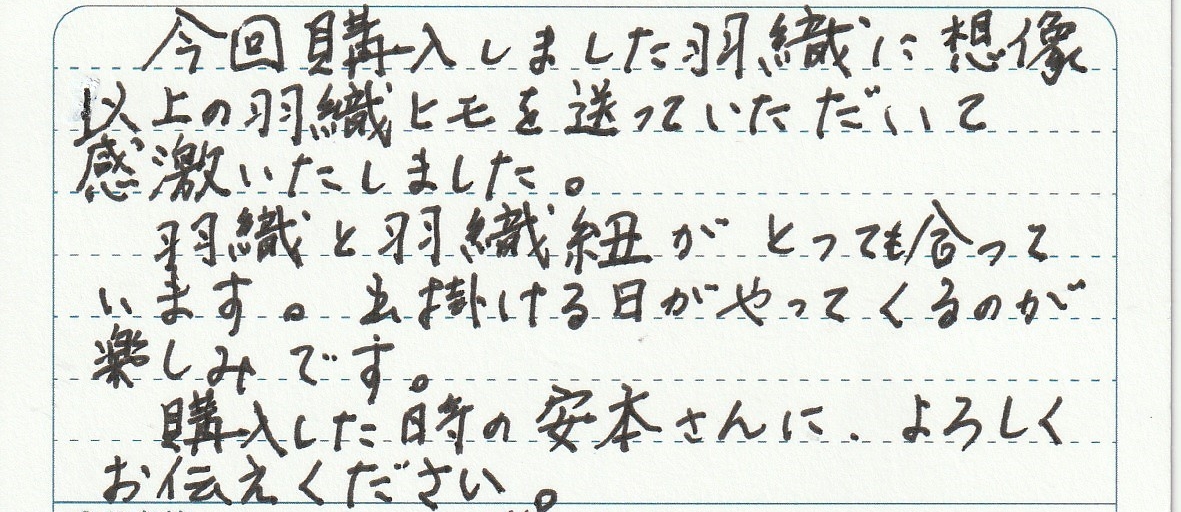 今回購入しました羽織に想像
以上の羽織ヒモを送っていただいて
感激いたしました。
羽織と羽織紐がとっても合って
います。お出掛ける日がやってくるのが
楽しみです。
購入した時の安本さんに、よろしく
お伝えください。